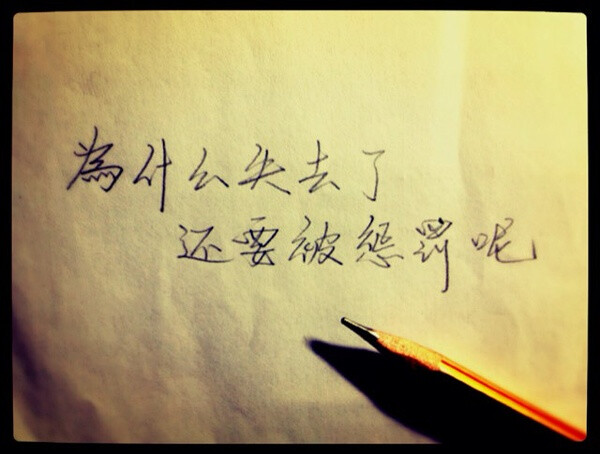 為什么失去了
还要被惩罚呢